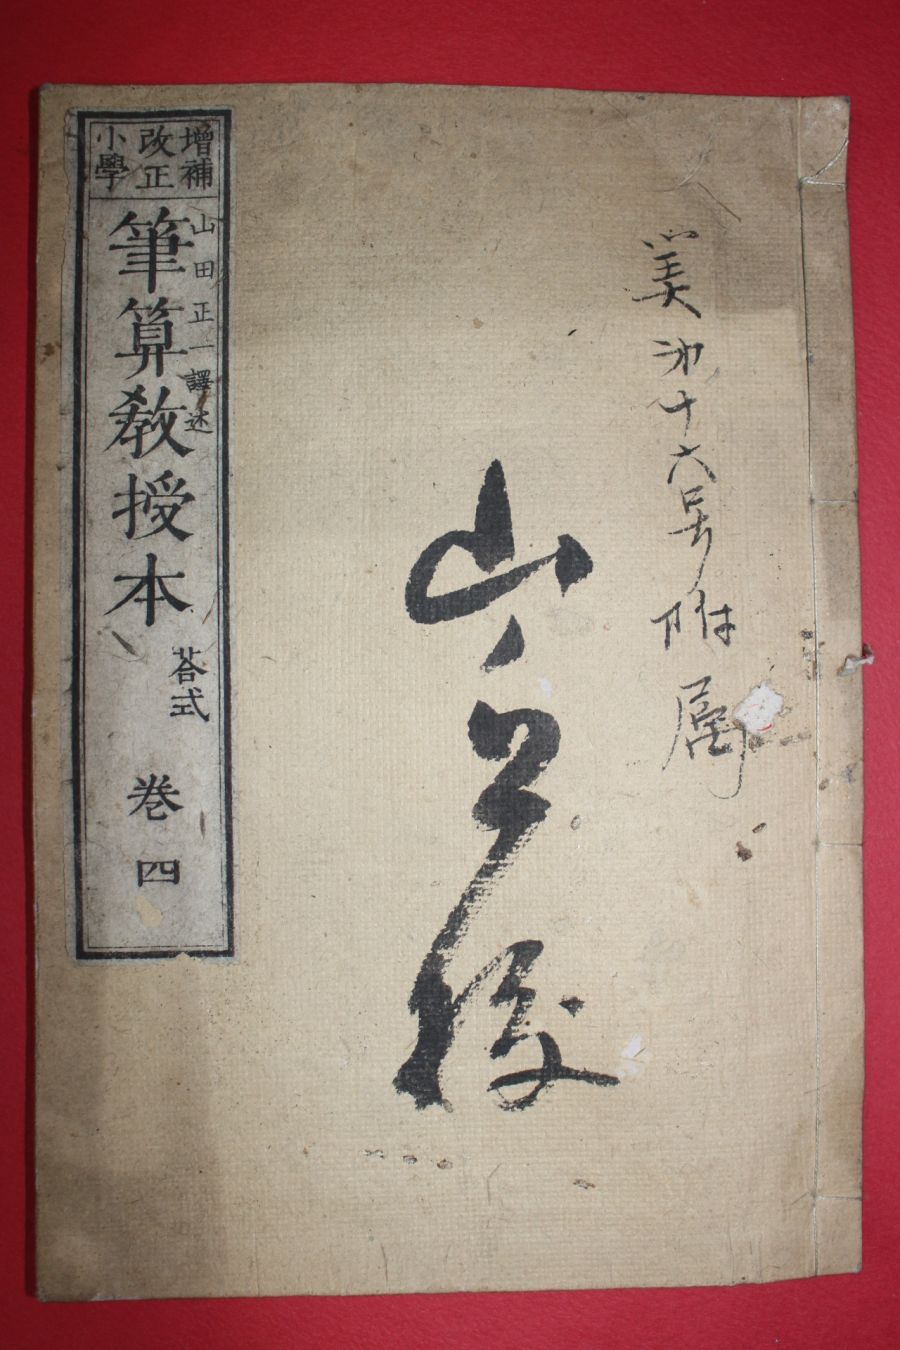 美沖十六号附属
増補
改正
小學
山田正一譯述
筆算教授本
荅式
巻四